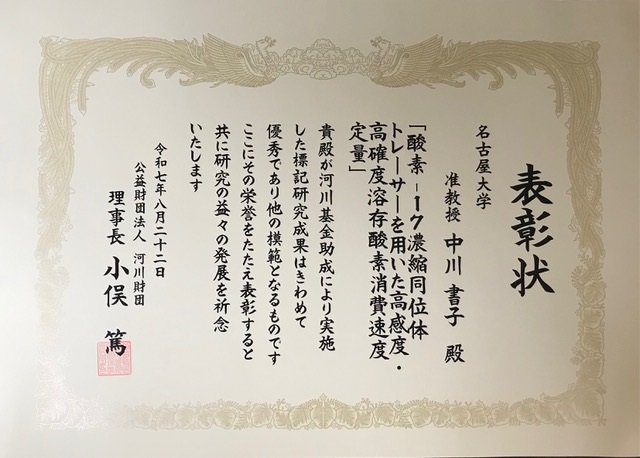 表彰状
名古屋大学
准教授 中川 書子 殿
「酸素-17濃縮同位体
トレーサーを用いた高感度・
高確度溶存酸素消費速度
定量」
貴殿が河川基金助成により実施
した標記研究成果はきわめて
優秀であり他の模範となるものです
ここにその栄誉をたたえ表彰すると
共に研究の益々の発展を祈念
いたします
令和七年八月二十二日
公益財団法人 河川財団
理事長 小俣 篤